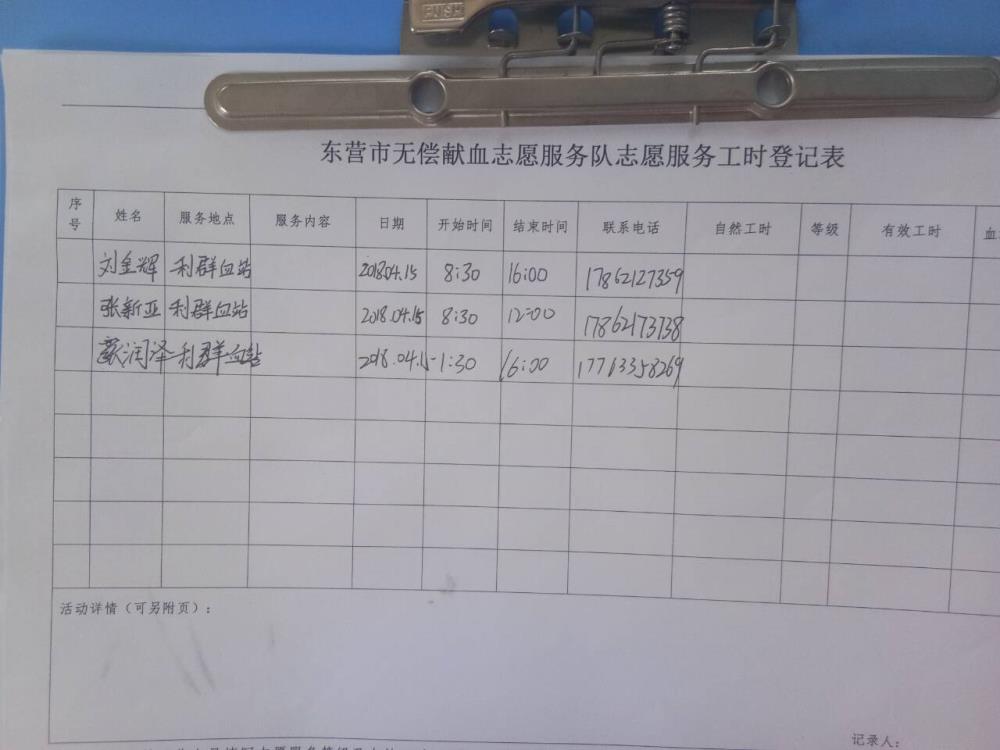 PUSH
东营市无偿献血志愿服务队志愿服务工时登记表
序号 姓名 服务地点 服务内容 日期 开始时间 结束时间 联系电话 自然工时 等级 有效工时 血
刘金辉 利群血站 2018.04.15 8:30 16:00 17862127359
张新亚 利群血站 2018.04.15 8:30 12:00 17862173738
润泽 利群血站 2018.04.15 1:30 16:00 17713358269
活动详情（可另附页）：
记录人：